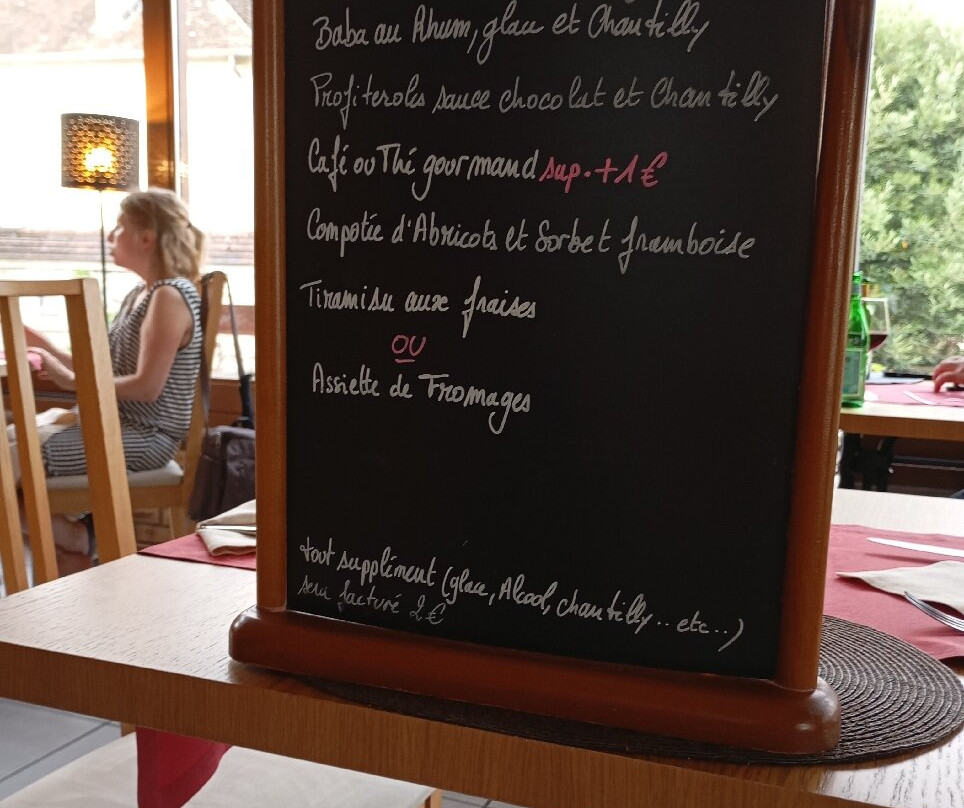 Baba au Rhum, glace et Chantilly
Profiteroles sauce chocolat et Chantilly
Café ou Thé gourmand sup. +1€
Compotée d'Abricots et Sorbet framboise
Tiramisu aux fraises
OU
Assiette de Fromages
tout supplément (glace, Alcool, chantilly.. etc..)
sera facturé 2€